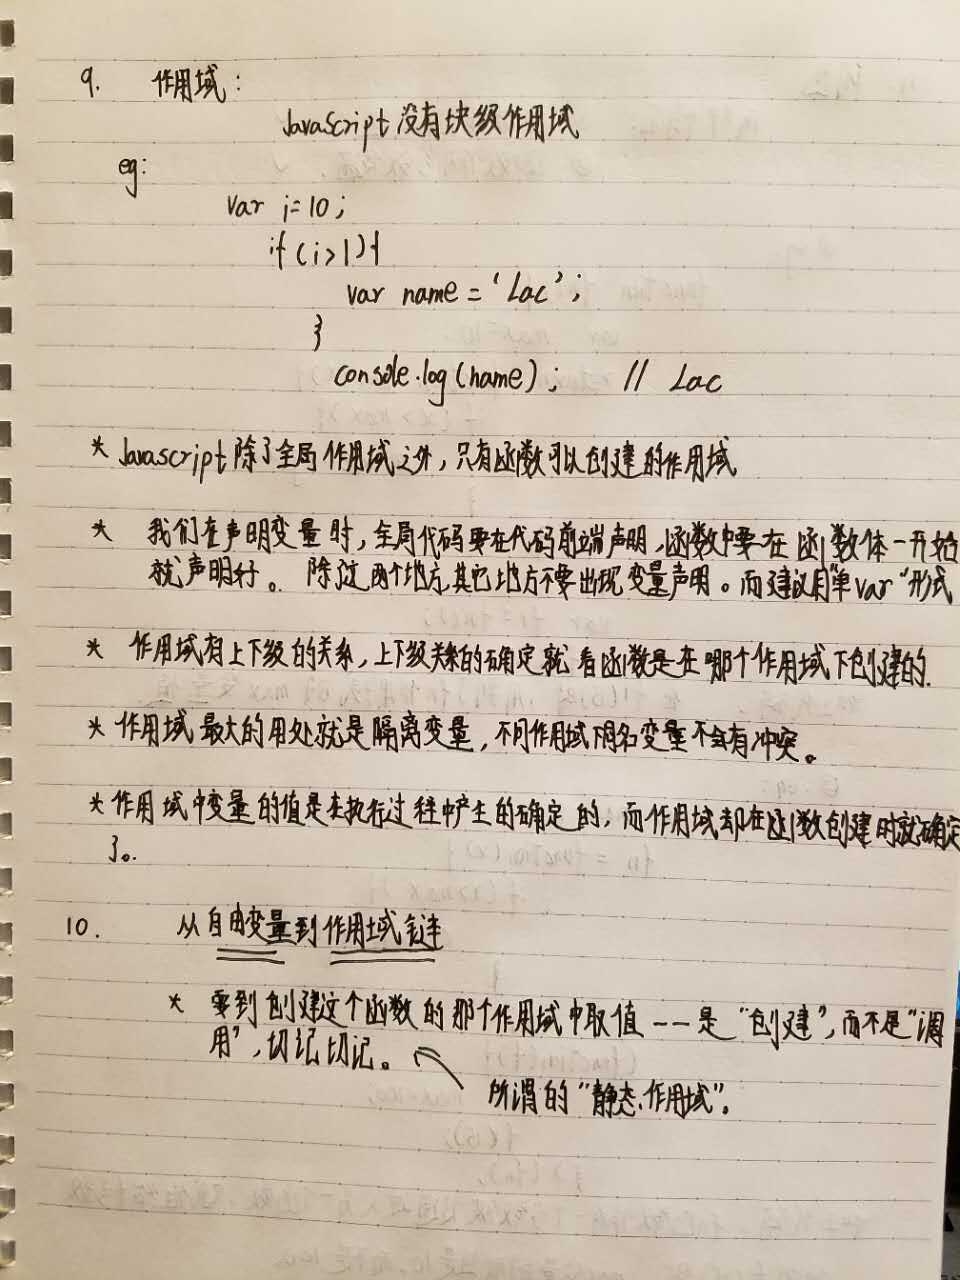 9. 作用域:
JavaScript 没有块级作用域
eg:
var i=10;
if(i>1){
var name = 'Lac';
}
console.log(name); // Lac
* Javascript 除了全局作用域之外,只有函数可以创建的作用域
* 我们在声明变量时,全局代码要在代码前端声明,函数中要在函数体一开始
就声明好。除这两个地方,其它地方不要出现变量声明。而建议用"单var"形式
* 作用域有上下级的关系,上下级关系的确定就看函数是在哪个作用域下创建的.
* 作用域最大的用处就是隔离变量,不同作用域下同名变量不会有冲突。
* 作用域中变量的值是在执行过程中产生的确定的,而作用域却在函数创建时就确定
了。
10. 从自由变量到作用域链
* 要到创建这个函数的那个作用域中取值——是"创建",而不是"调
用",切记切记。
所谓的"静态作用域"。